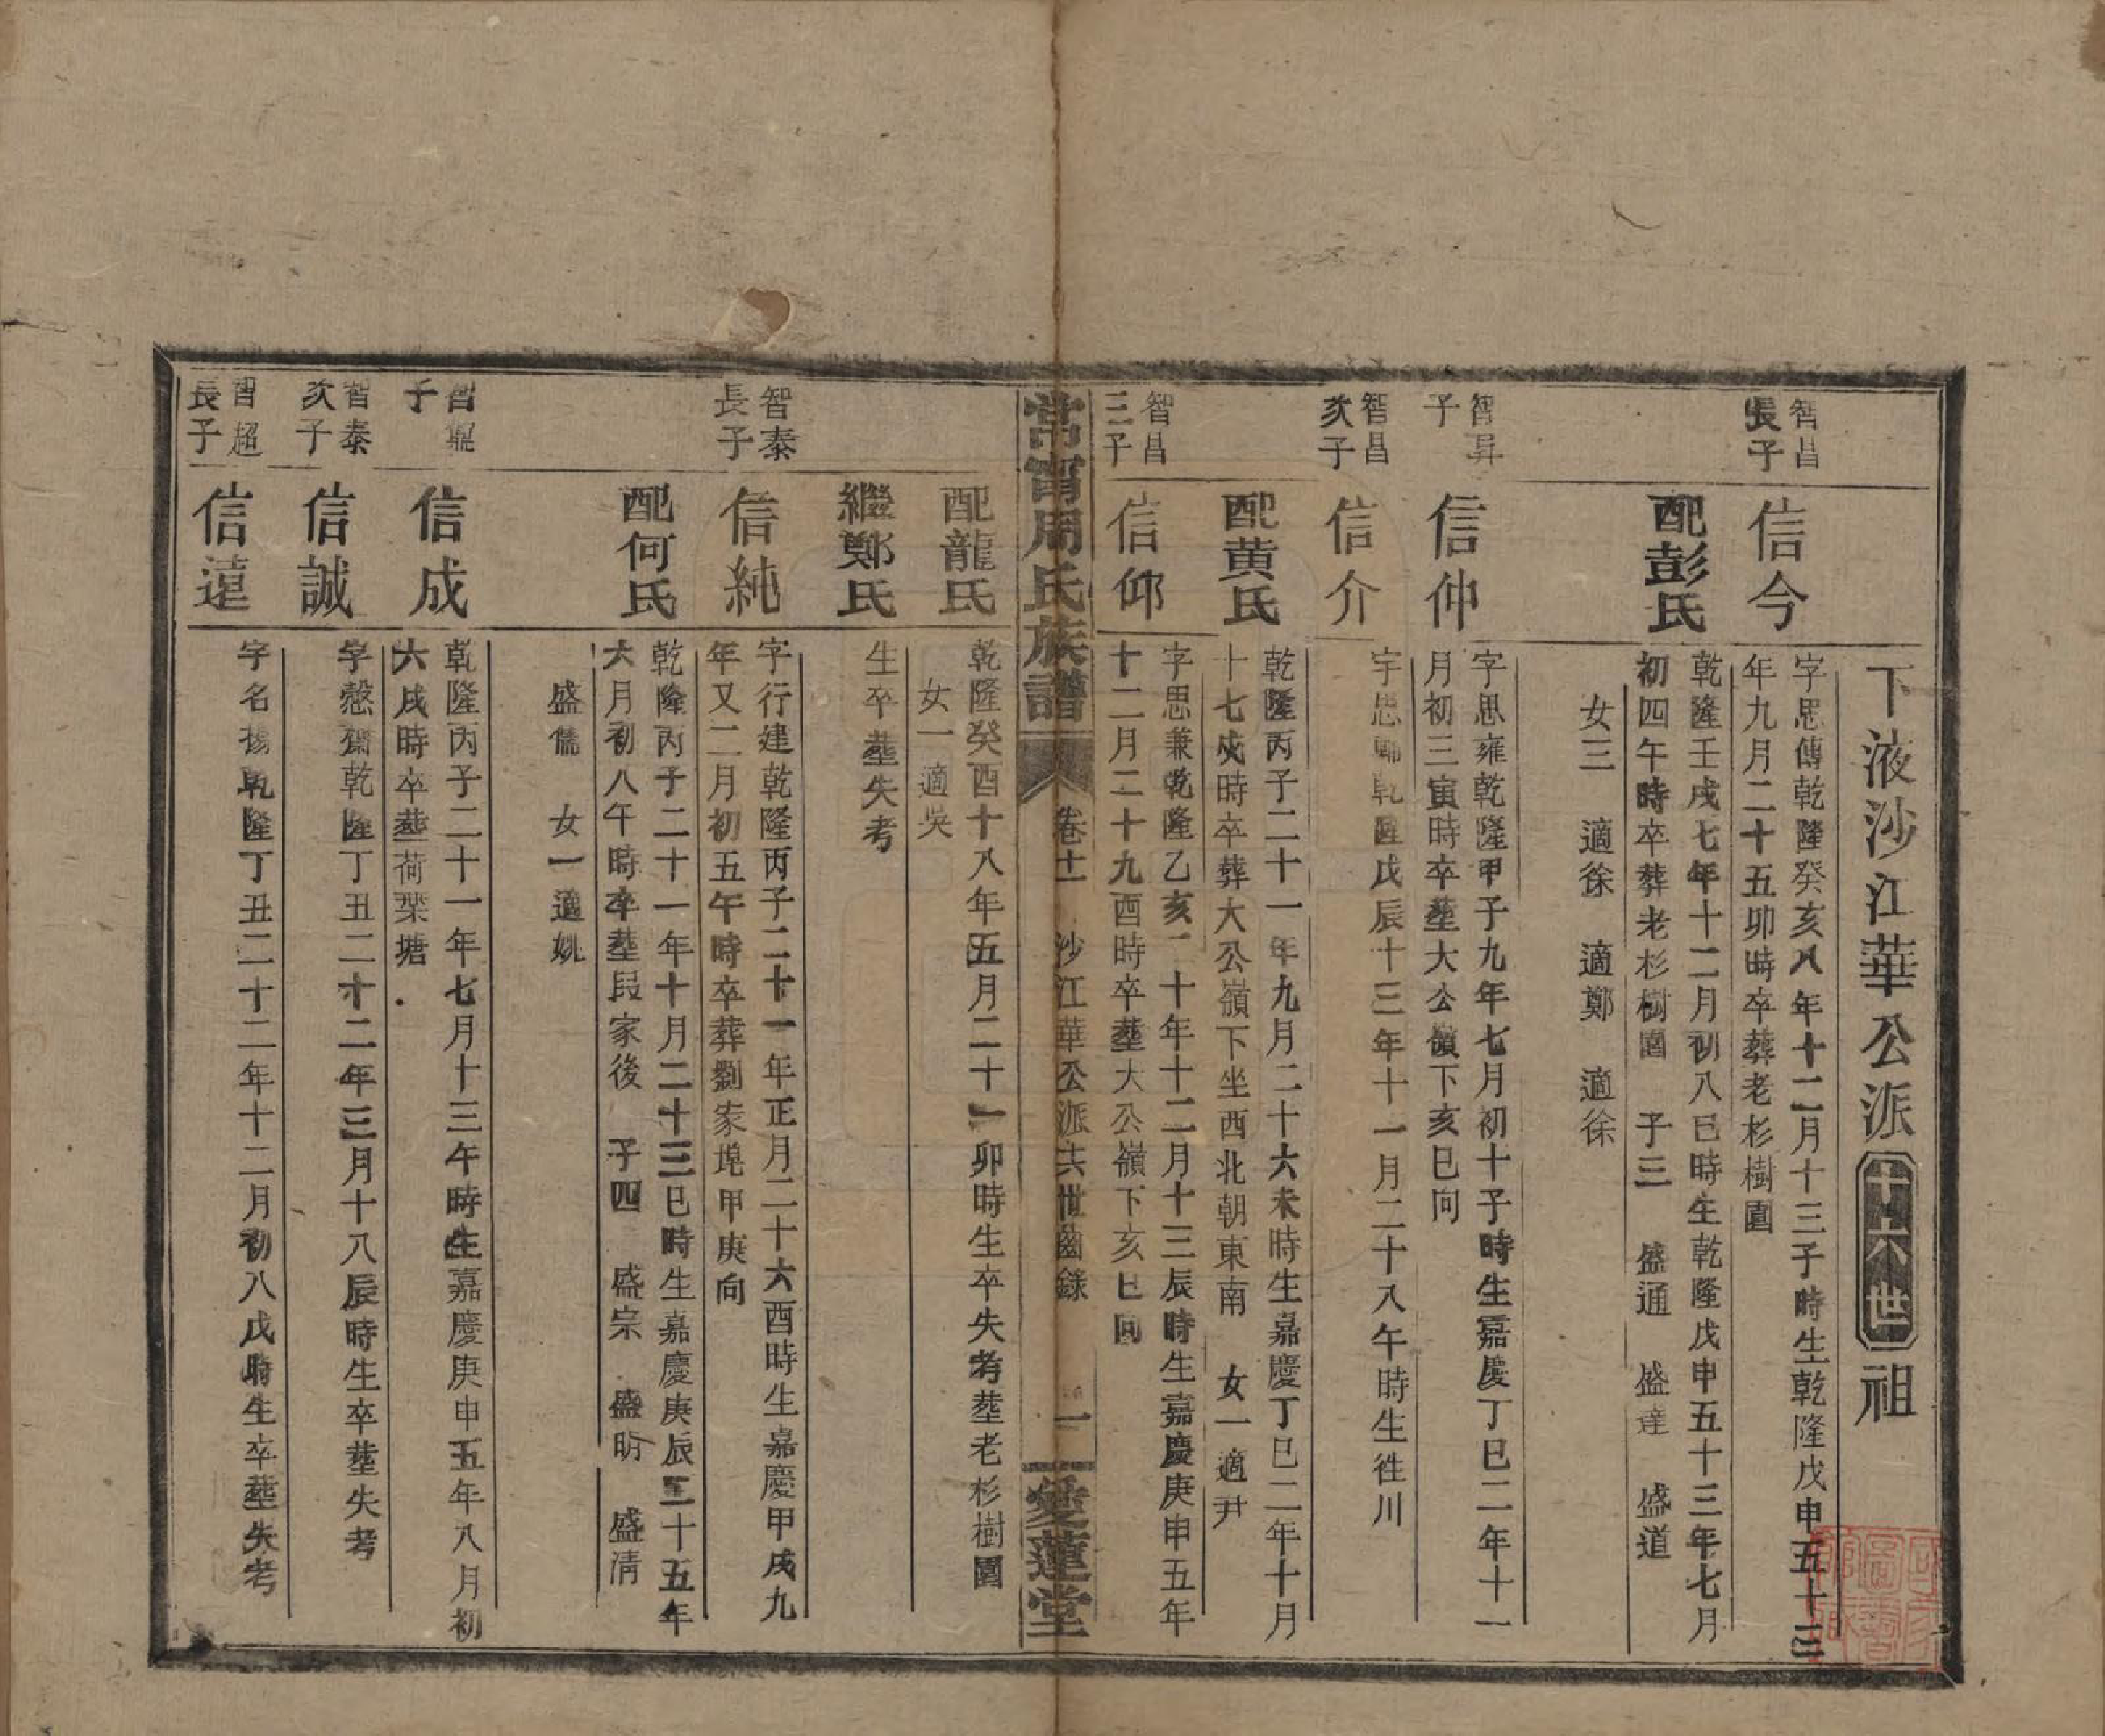 下液沙江華公派十六世祖
智昌長子
信今
字思傳乾隆癸亥八年十二月十三子時生乾隆戊申五十三
年九月二十五卯時卒葬老杉樹園
配彭氏
乾隆壬戌七年十二月初八巳時生乾隆戊申五十三年七月
初四午時卒葬老杉樹園 子三 盛通 盛達 盛道
女三 適徐 適鄭 適徐
智昇子
信仲
字思雍乾隆甲子九年七月初十子時生嘉慶丁巳二年十一
月初三寅時卒塟大公嶺下亥巳向
智昌次子
信介
字思 乾隆戊辰十三年十一月二十八午時生徃川
配黄氏
乾隆丙子二十一年九月二十六未時生嘉慶丁巳二年十月
十七戌時卒葬大公嶺下坐西北朝東南 女一適尹
智昌三子
信仰
字思兼乾隆乙亥二十年十二月十三辰時生嘉慶庚申五年
十二月二十九酉時卒塟大公嶺下亥巳向
常甯周氏族譜 卷十一 沙江華公派共世齒錄 一 愛蓮堂
配龍氏
乾隆癸酉十八年五月二十一卯時生卒失考塟老杉樹園
女一適吳
繼鄭氏
生卒塟失考
智泰長子
信純
字行建乾隆丙子二十一年正月二十六酉時生嘉慶甲戌九
年又二月初五午時卒葬劉家塊甲庚向
配何氏
乾隆丙子二十一年十月二十三巳時生嘉慶庚辰二十五年
六月初八午時卒塟段家後 子四 盛宗 盛明 盛清
盛儒 女一適姚
智鼎子
信成
乾隆丙子二十一年七月十三午時生嘉慶庚申五年八月初
六戌時卒塟荷葉塘
智泰次子
信誠
字慤齋乾隆丁丑二十二年三月十八辰時生卒塟失考
智超長子
信遠
字名揚乾隆丁丑二十二年十二月初八戌時生卒塟失考